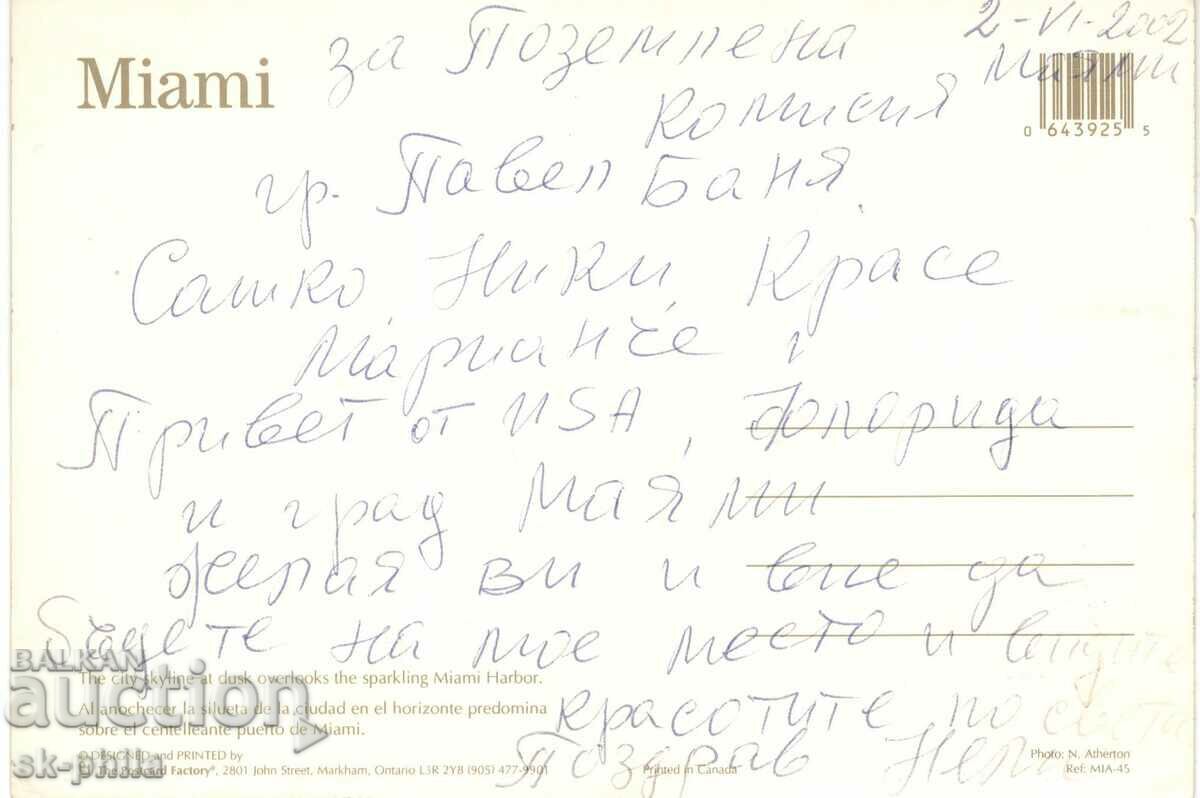 2-VI-2002
Маями
Miami
за Поземлена
комисия
0 643925 5
гр. Павел Баня
Сашко, Ники, Красе
Марианче,
Привет от USA, Флорида
и град Маями
Желая ви и вие да
бъдете на мое место и видите
красотите по света
Поздрав
The city skyline at dusk overlooks the sparkling Miami Harbor.
Al anochecer la silueta de la ciudad en el horizonte predomina
sobre el centelleante puerto de Miami.
© DESIGNED and PRINTED by
The Postcard Factory®, 2801 John Street, Markham, Ontario L3R 2Y8 (905) 477-9901
Printed in Canada
Photo: N. Atherton
Ref: MIA-45
BALKAN
auction
sk-phila